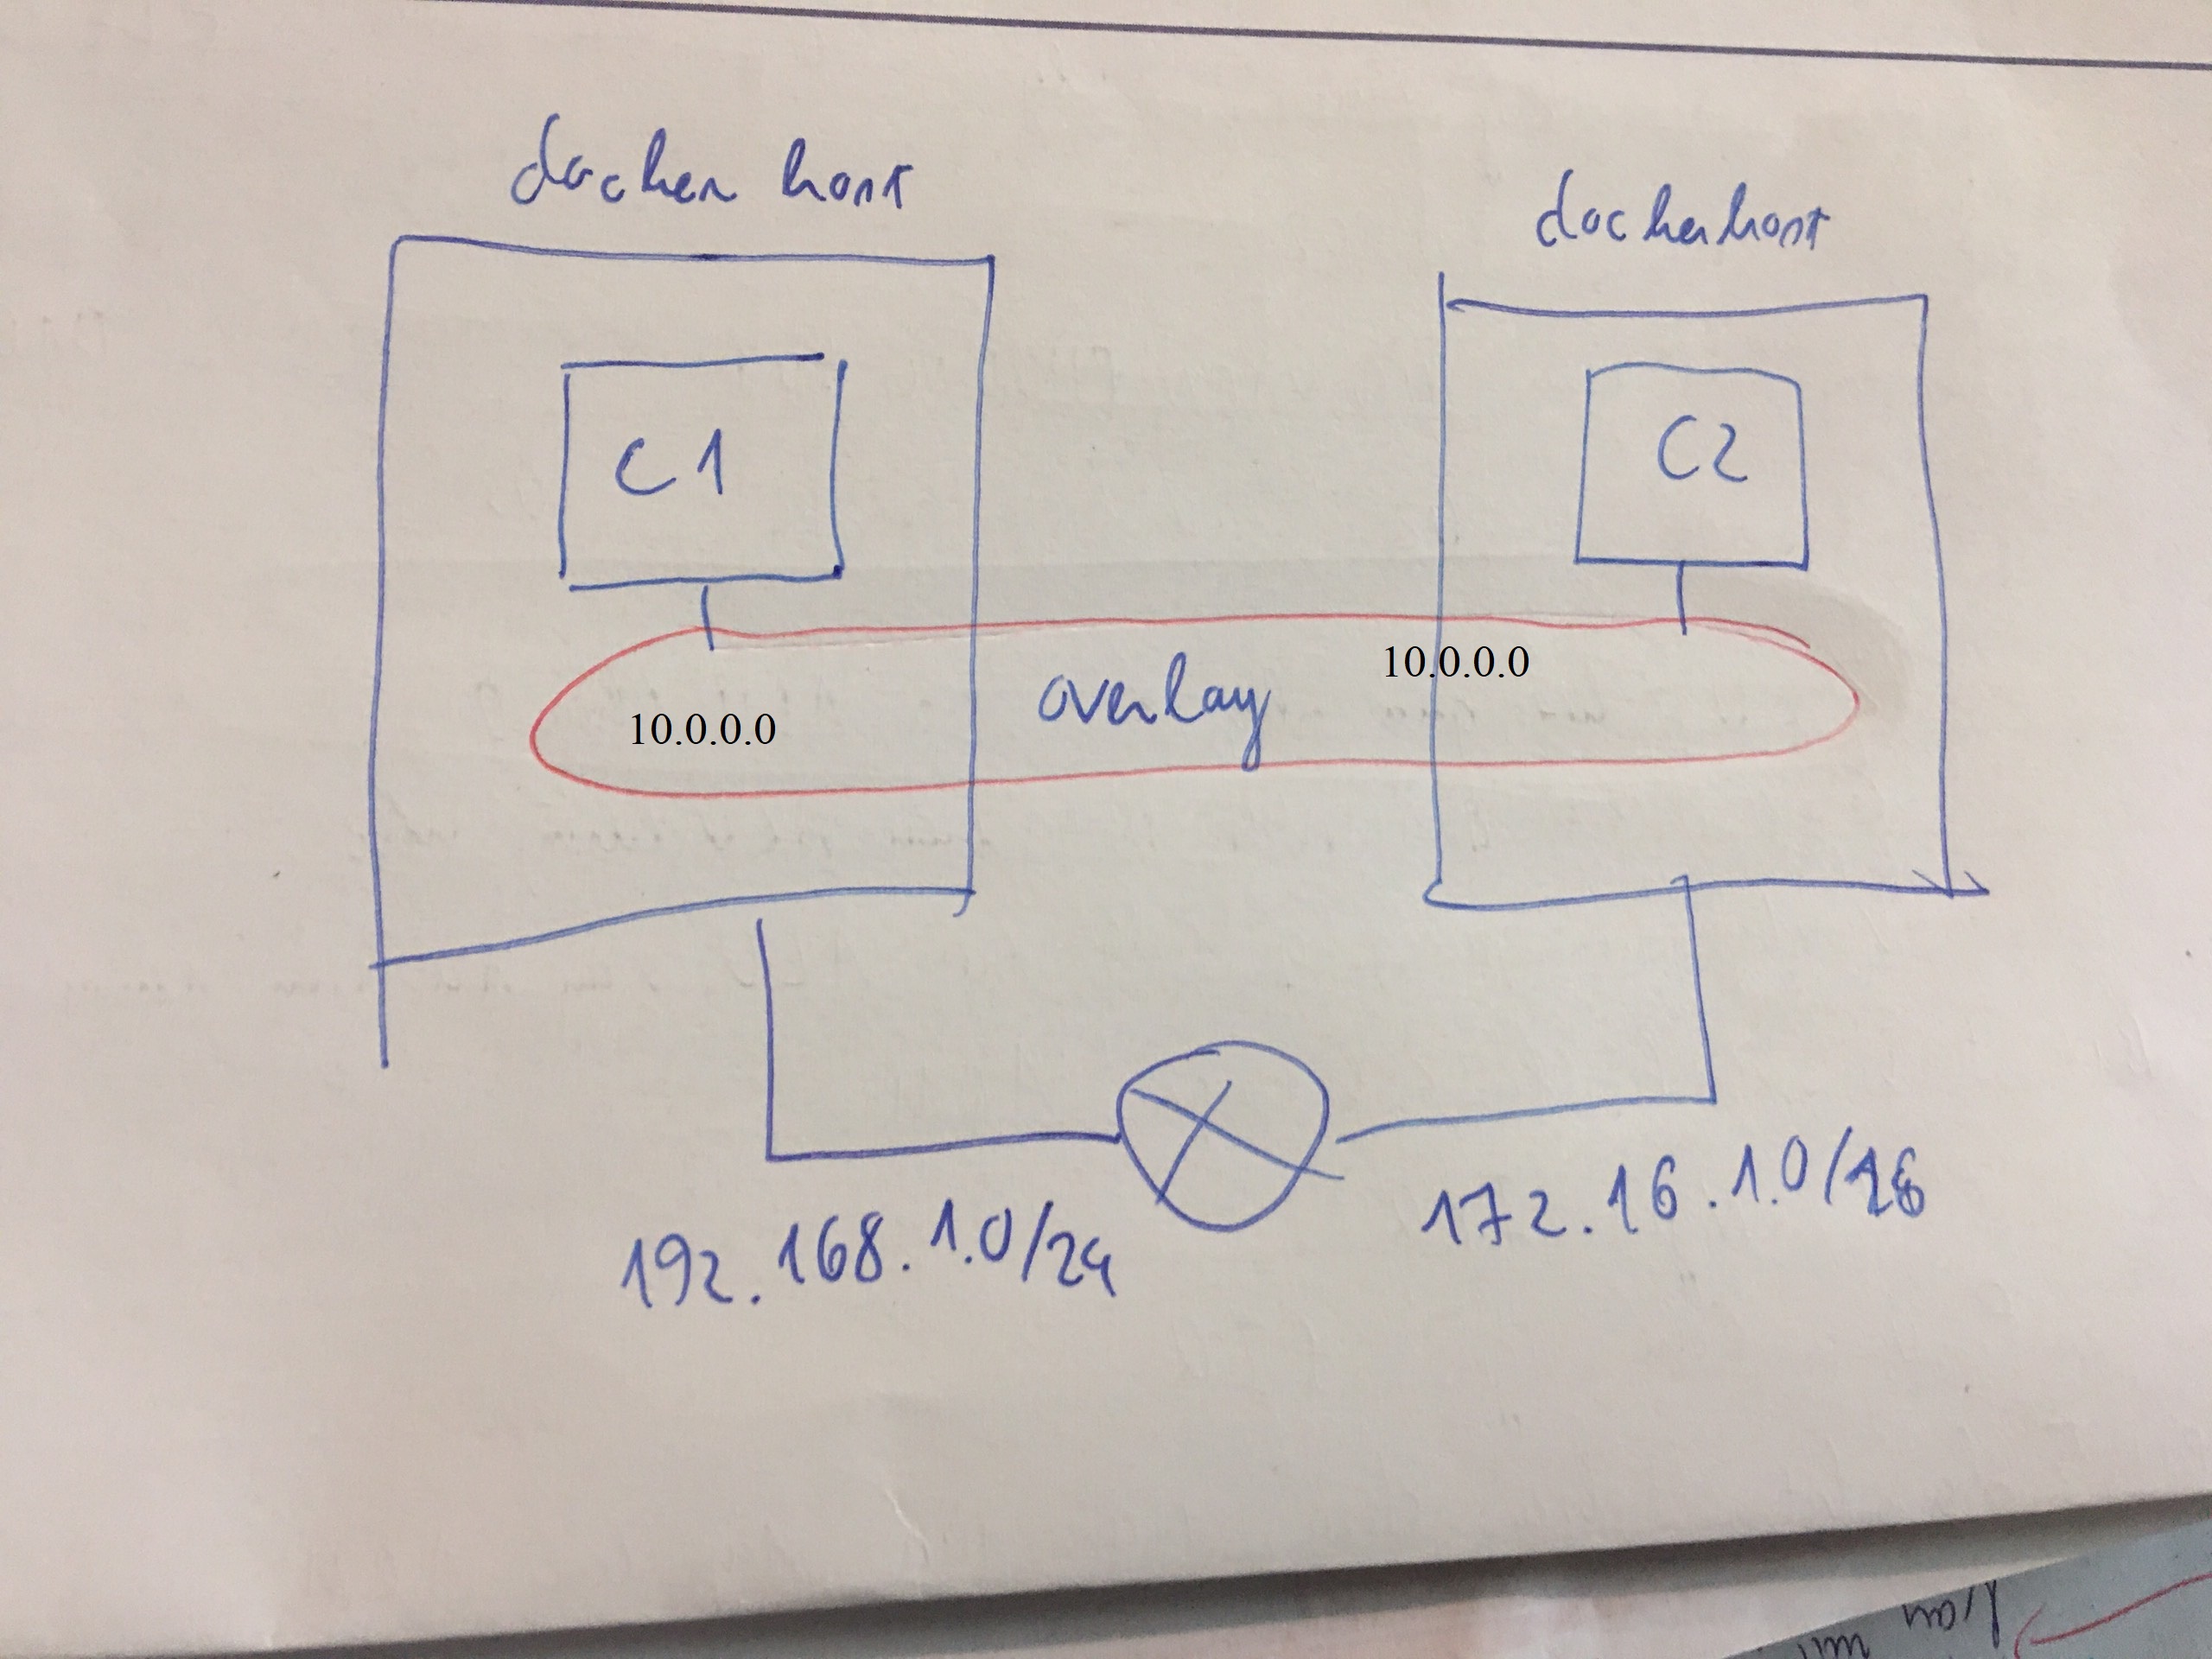 docker host
dockerhost
C1
C2
10.0.0.0
overlay
10.0.0.0
192.168.1.0/24
172.16.1.0/